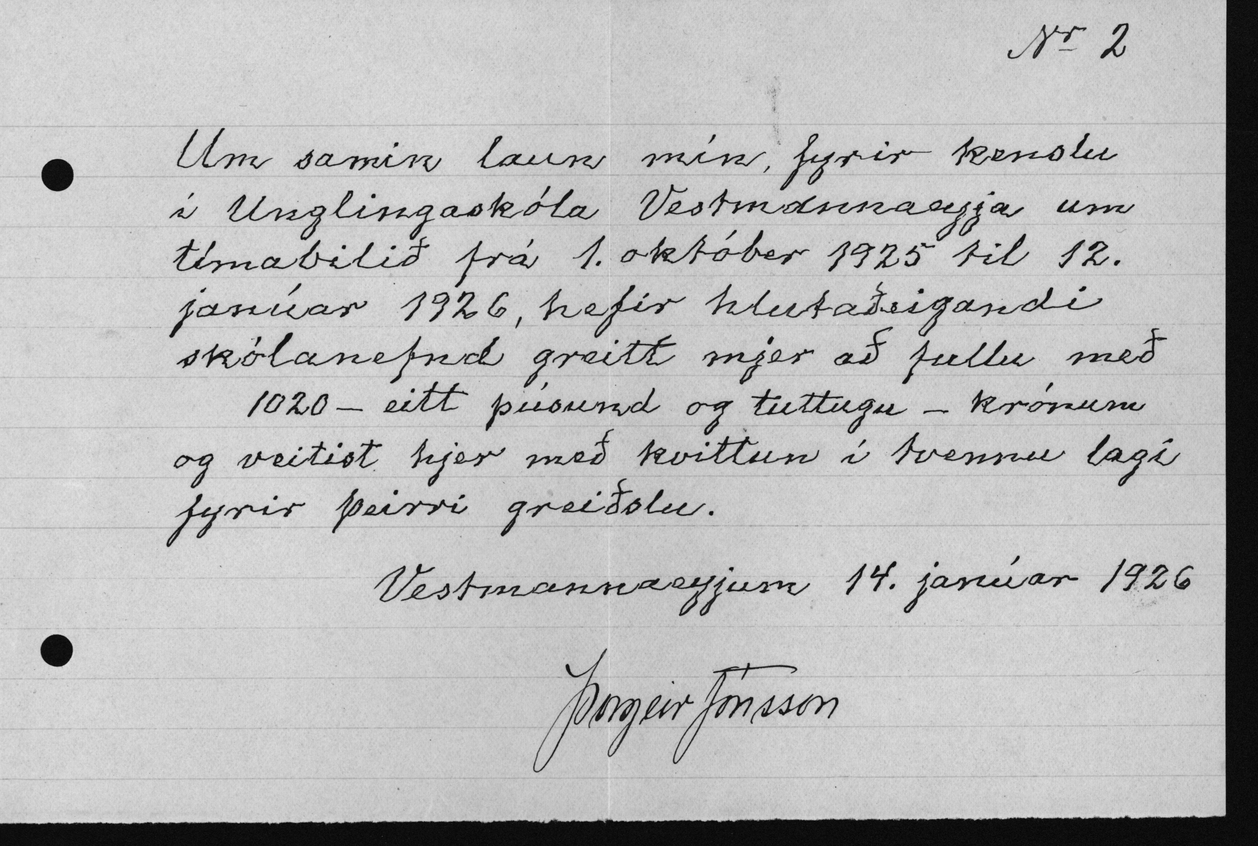 Nr 2
Um samin laun mín, fyrir kenslu
í Unglingaskóla Vestmannaeyja um
tímabilið frá 1. október 1925 til 12.
janúar 1926, hefir hlutaðeigandi
skólanefnd greitt mjer að fullu með
1020 – eitt þúsund og tuttugu – krónum
og veitist hjer með kvittun í tvennu lagi
fyrir þeirri greiðslu.
Vestmannaeyjum 14. janúar 1926
Þorgeir Jónsson